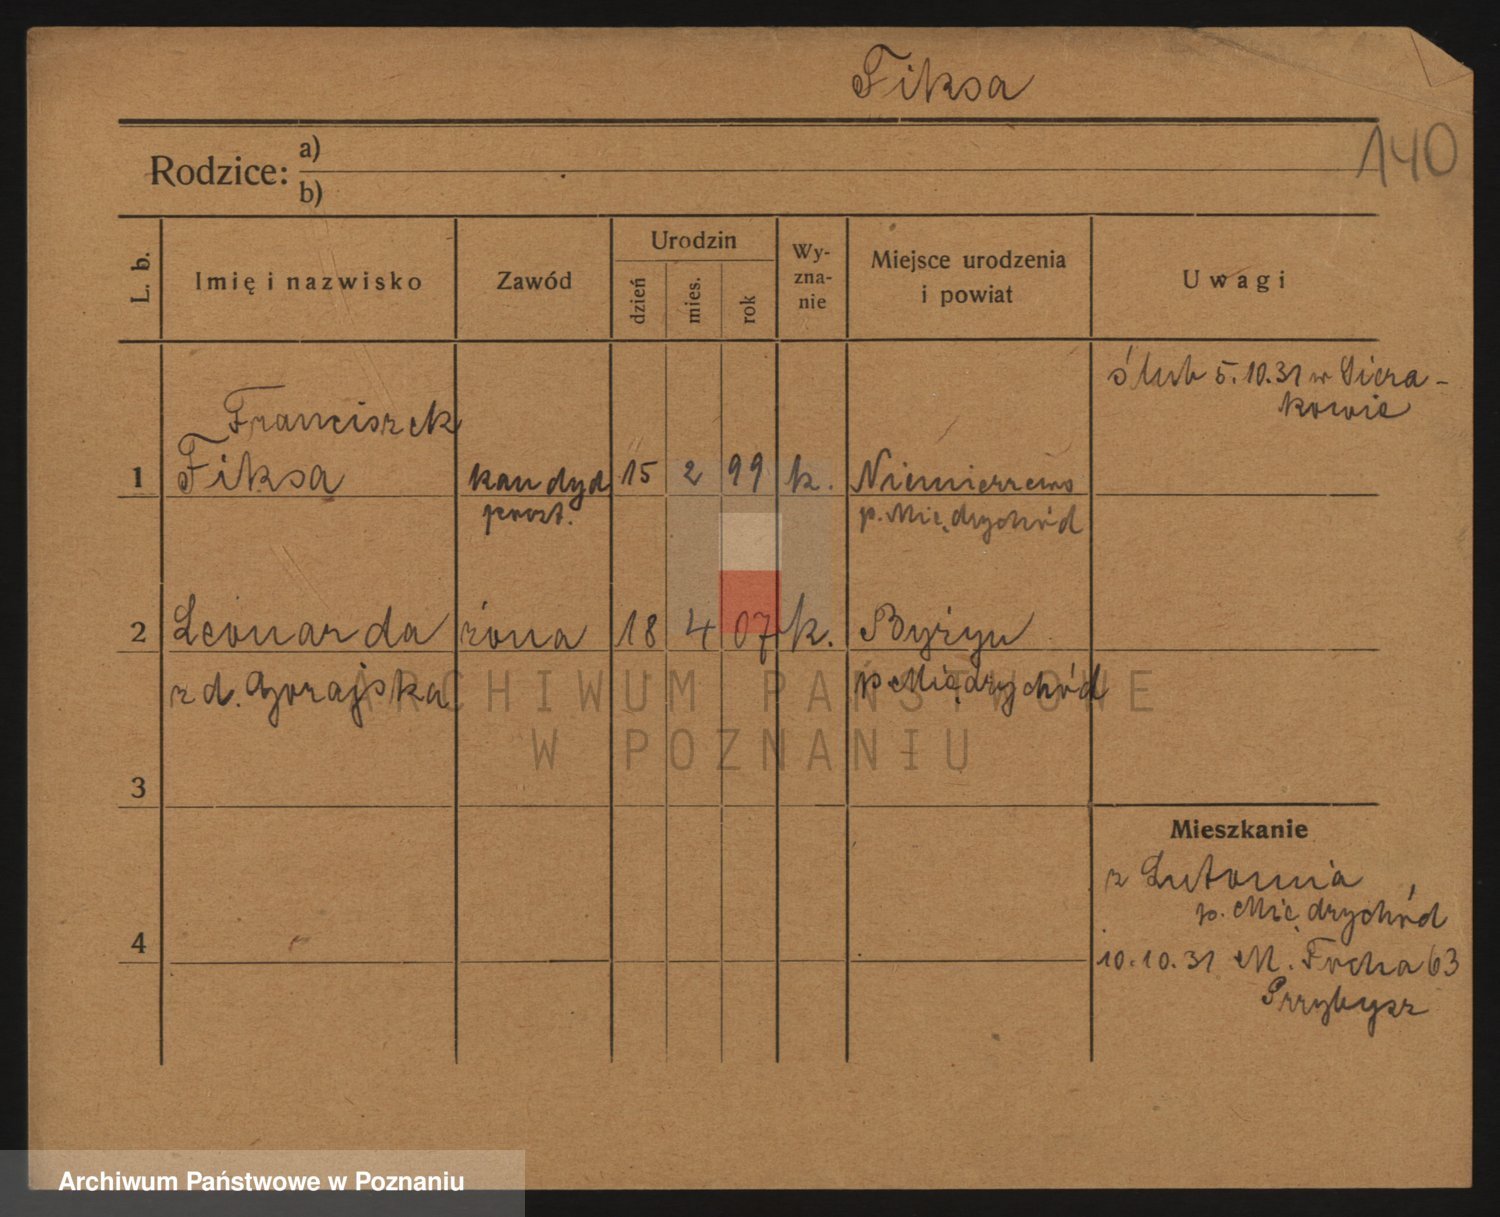 Fiksa
140
Rodzice: a)
b)
L. b.
Imię i nazwisko
Zawód
Urodzin
dzień
mies.
rok
Wy-
zna-
nie
Miejsce urodzenia
i powiat
Uwagi
ślub 5.10.31 w Siera-
kowie
Franciszek
1 Fiksa kandyd 15 2 99 k. Niemierzewo
poczt. p. Międzychód
2 Leonarda żona 18 4 07 k. Byżyn
z d. Gorajska p. Międzychód
ARCHIWUM PAŃSTWOWE
W POZNANIU
3
Mieszkanie
z Lutomia
p. Międzychód
4
10.10.31 M. Focha 63
Przybysz
Archiwum Państwowe w Poznaniu